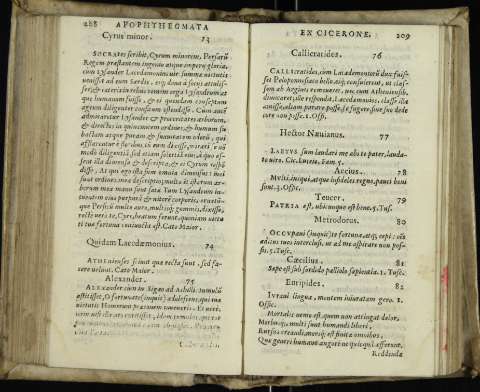 288 APOPHTHEGMATA
Cyrus minor. 73
SOCRATES scribit, Cyrum minorem, Persarū
Regem præstantem ingenio atque imperij gloria,
cum Lysander Lacedæmonius vir summæ virtutis
venisset ad eum Sardis, eiq; dona à socijs attulis-
set, & cæteris in rebus comem erga Lysandrum at-
que humanum fuisse, & ei quendam conseptum
agrum diligenter consitum ostendisse. Cum autē
admiraretur Lysander & proceritates arborum,
& directos in quincuncem ordines, & humum su-
bactam atque puram & suauitatem odorū, qui
afflarentur è floribus, tum eum dixisse, mirari, se nō
modo diligentiā, sed etiam solertiā eius, à quo es-
sent illa dimensa & descripta, & ei Cyrum respō
disse, At qui ego ista sum omnia dimensus: mei
sunt ordines, mea descriptio, multæ et istarum ar-
borum mea manu sunt satæ. Tum Lysandrum in-
tuentem eius purpurā & nitorē corporis, ornatū-
que Persicū multo auro, multisq; gemmis, dixisse,
recte vero te, Cyre, beatum ferunt, quoniam virtu
ti tuæ fortuna coniuncta est. Cato Maior.
Quidam Lacedæmonius. 74
ATHENIENSES sciunt quæ recta sunt, sed fa-
cere nolunt. Cato Maior.
Alexander. 75
ALEXANDER cum in Sigæo ad Achillis tumulū
astitisset, O fortunate (inquit) adulescens, qui tuæ
virtutis Homerum præconem inueneris. Et vere,
nam nisi Ilias illa extitisset, idem tumulus, qui
EX CICERONE. 209
Callicratides. 76
CALLICRATIDES, cùm Lacædemoniorū dux fuis-
set Peloponnesiaco bello, atq; consulerent, ut clas-
sem ab Argiuis remoueret, nec cum Atheniensib.
dimicaret, ille respondit, Lacedæmonios, classe illa
amissa, aliam parare posse, se fugere, sine suo dede
core non posse. 1. Off.
Hector Næuianus. 77
LAETVS sum laudari me abs te pater, lauda-
to viro. Cic. Luceio, Fam. 5.
Accius. 78
Multi iniqui, atque infideles regno, pauci boni
sunt. 3. Offic.
Teucer. 79
PATRIA est, ubicunque est bene. 5. Tus.
Metrodorus. 80
OCCVPAVI (inquit) te fortuna, atq; cepi: oēs
aditus tuos interclusi, ut ad me aspirare non pos-
sis. 5. Tusc.
Cæcilius. 81
Sæpe est sub sordido palliolo sapientia. 3. Tusc.
Euripides. 82
IVRAVI lingua, mentem iniuratam gero. 1.
Offic.
Mortalis nemo est, quem non attingat dolor,
Morbusq; multi sunt humandi liberi,
Rursus creandi, morsq; est finita omnibus,
Quæ generi humano angorē nequicquā afferunt,
Reddenda